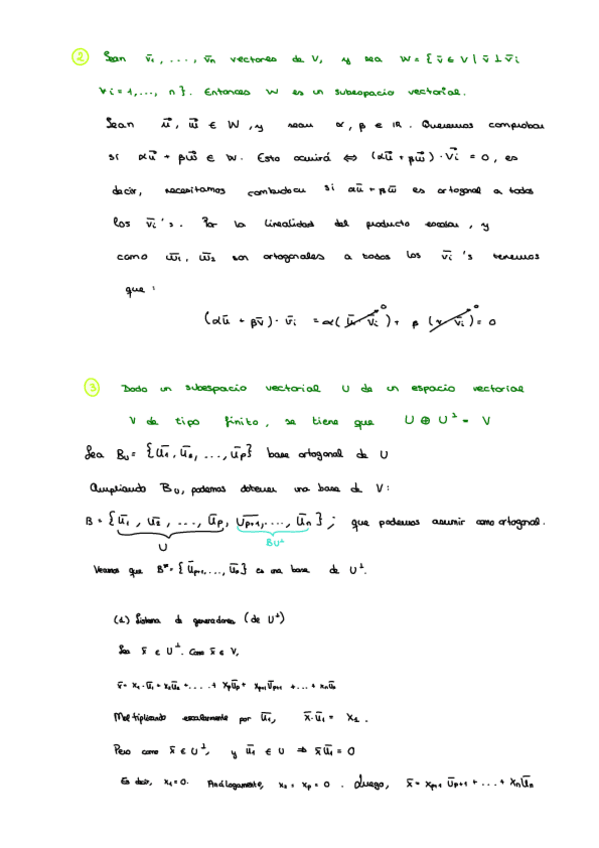 ② Sean v̄₁, ..., v̄ₙ vectores de V, y sea W = { v̄ ∈ V | v̄ ⊥ v̄ᵢ
∀ i = 1, ..., n }. Entonces W es un subespacio vectorial.
Sean ū, w̄ ∈ W, y sean α, β ∈ ℝ. Queremos comprobar
si αū + βw̄ ∈ W. Esto ocurirá ⇔ (αū + βw̄) · v̄ᵢ = 0, es
decir, necesitamos si αū + βw̄ es ortogonal a todos
los v̄ᵢ's. Por la linealidad del producto escalar, y
como w̄₁, w̄₂ son ortogonales a todos los v̄ᵢ's tenemos
que:
0 0
(αū + βv̄) · v̄ᵢ = α(ū · v̄ᵢ) + β( v̄ᵢ) = 0
③ Dado un subespacio vectorial U de un espacio vectorial
V de tipo finito, se tiene que U ⊕ U⊥ = V
Sea Bᵤ = {ū₁, ū₂, ..., ūp} base ortogonal de U
Ampliando Bᵤ, podemos obtener una base de V:
B = {ū₁, ū₂, ..., ūp, ūp+1, ..., ūn}; que podemos asumir como ortogonal.
U BU⊥
Veamos que B* = {ūp+1, ..., ūn} es una base de U⊥.
(1) Sistema de generadores (de U⊥)
Sea x̄ ∈ U⊥. Como x̄ ∈ V,
x̄ = x₁·ū₁ + x₂ū₂ + .... + xpūp + xp+1ūp+1 + ... + xnūn
Multiplicando escalarmente por ū₁, x̄·ū₁ = x₁.
Pero como x̄ ∈ U⊥, y ū₁ ∈ U ⇒ x̄ū₁ = 0
Es decir, x₁=0. Análogamente, x₂ = xp = 0. Luego, x̄ = xp+1 ūp+1 + ... + xnūn